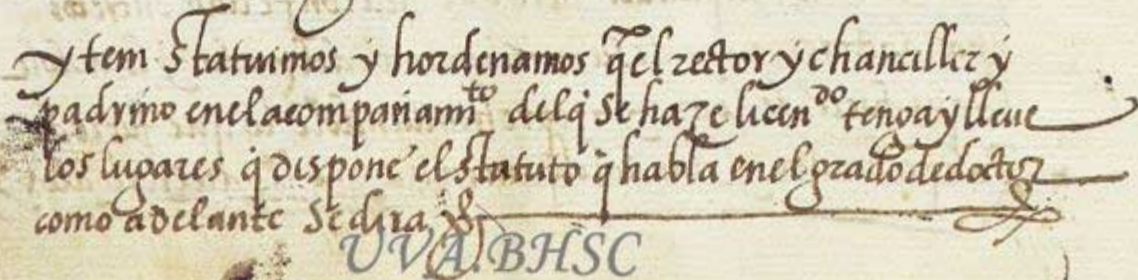 ytem Statuimos y hordenamos q̃ el rector y chanciller y
padrino en el acompañamito del q̃ Se haze licendo tenga y lleve
los lugares q̃ dispone el Statuto q̃ habla en el grado de doctor
como adelante Se dira
UVA. BHSC